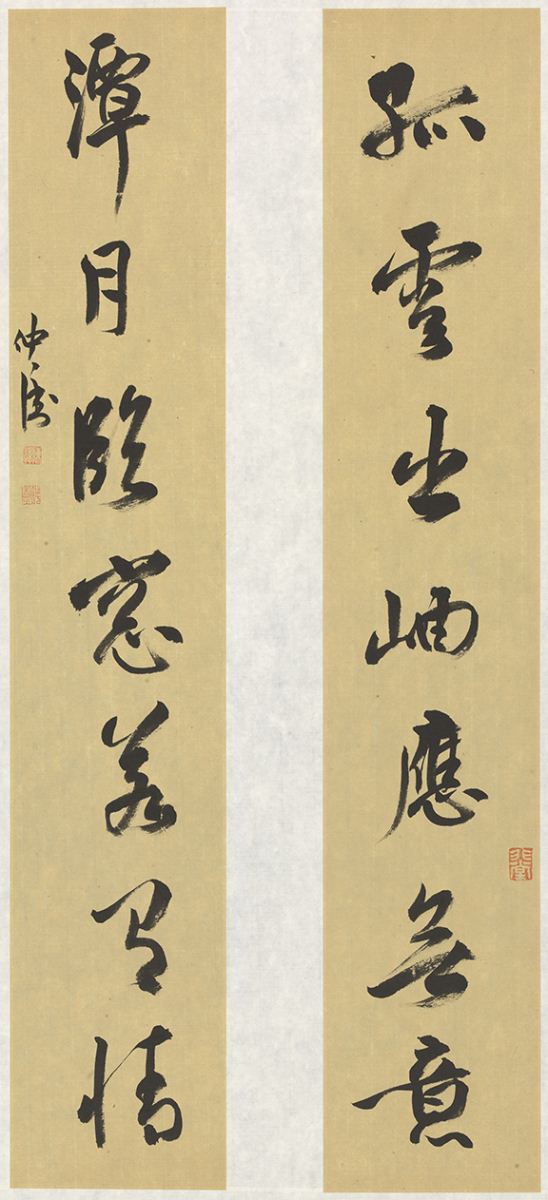 孤雲出岫應無意
潭月臨窗若有情